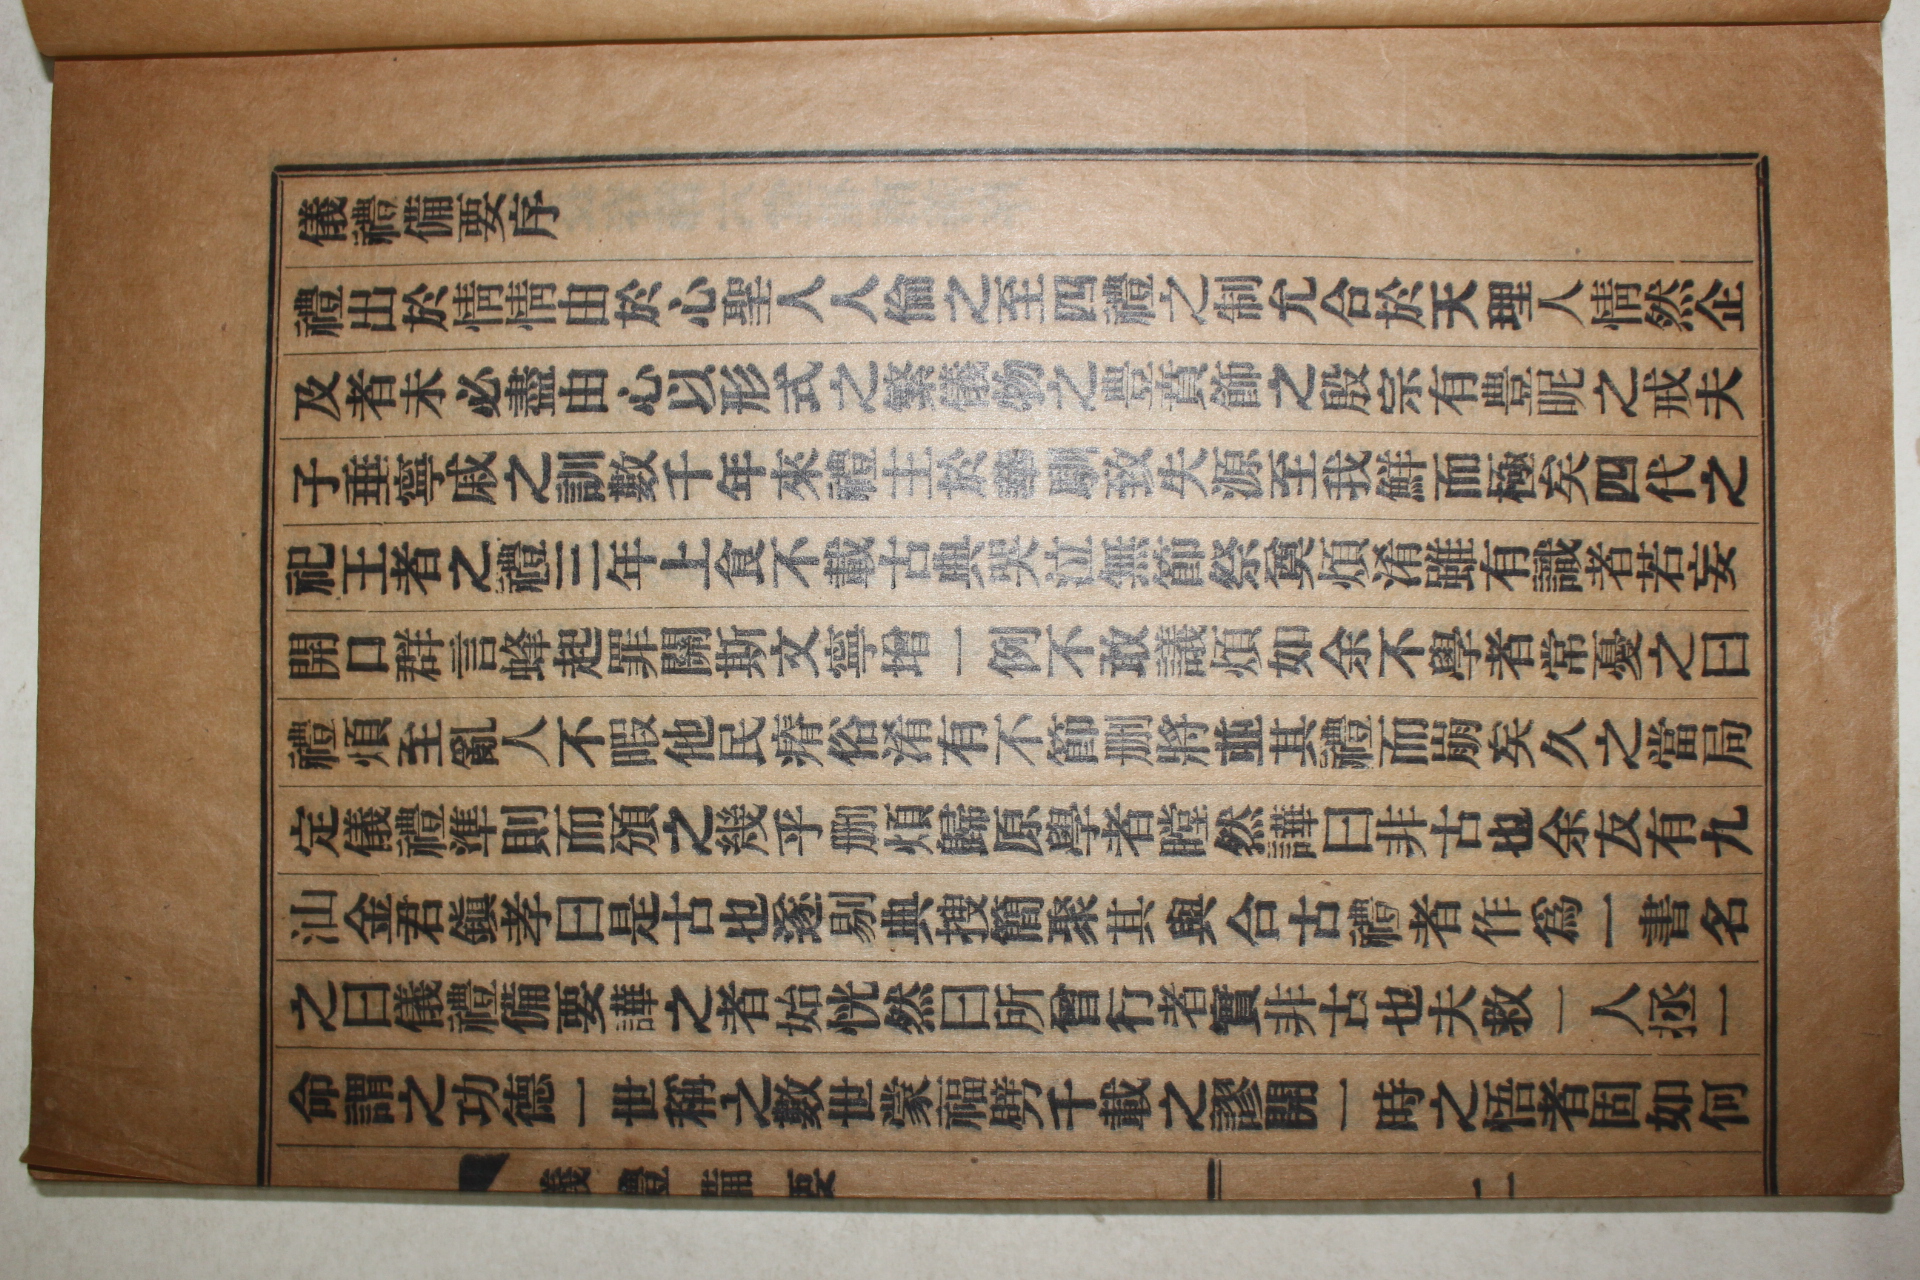 儀禮備要序
禮出於情情由於心聖人人倫之至四禮之制允合於天理人情然企
及者未必盡由心以形式之繁儀物之豊賁節之殷宗有豊昵之戒夫
子垂寧戚之訓數千年來禮主於時致失源至我鮮而極矣四代之
祀王者之禮三年上食不載古典哭泣無節祭奠煩淆雖有識者若妄
開口群言蜂起罪關斯文寧增一例不敢議煩如余不學者常憂之曰
禮煩至亂人不暇他民瘠俗淆有不節刪將並其禮而崩矣久之當局
定儀禮準則而頒之幾乎刪煩歸原學者瞠然譁曰非古也余友有九
汕金君鎭孝曰是古也遂剔典搜簡聚其與合古禮者作爲一書名
之曰儀禮備要譁之者始恍然曰所曾行者實非古也夫救一人拯一
命謂之功德一世稱之數世蒙福劈千載之謬開一時之悟者固如何
儀禮備要 一